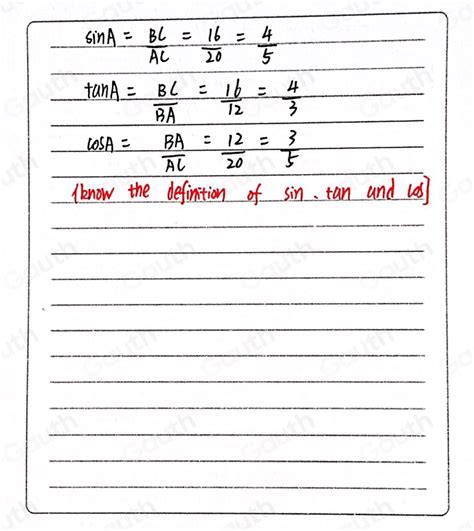 sinA = BC/AC = 16/20 = 4/5
tanA = BC/BA = 16/12 = 4/3
cosA = BA/AC = 12/20 = 3/5
(know the definition of sin. tan and cos]